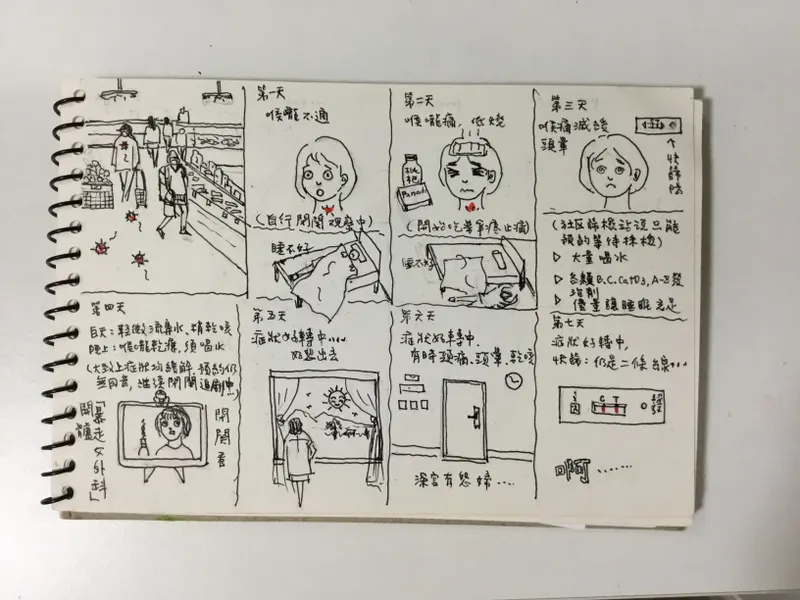 第一天
喉嚨不適
(自行閉關觀察中)
睡不好
第二天
喉嚨痛，低燒
Panad
(開始吃普拿疼止痛)
睡不好
第三天
喉痛減緩
頭暈
↑
快篩陰
(社區篩檢站說只能
預約等待採檢)
▷ 大量喝水
▷ 各類B.C.
泡劑
▷ 儘量讓睡眠充足
第四天
白天：輕微流鼻水、稍乾咳
晚上：喉嚨乾癢，須喝水
無回音，繼續閉關追劇中
「暴走女外科」
閉關看
第五天
症狀好轉中....
好想出去
第六天
症狀好轉中，
有時頭痛、頭暈、乾咳
深宮有怨婦....
第七天
症狀好轉中，
快篩：仍是二條
C T
呵.......